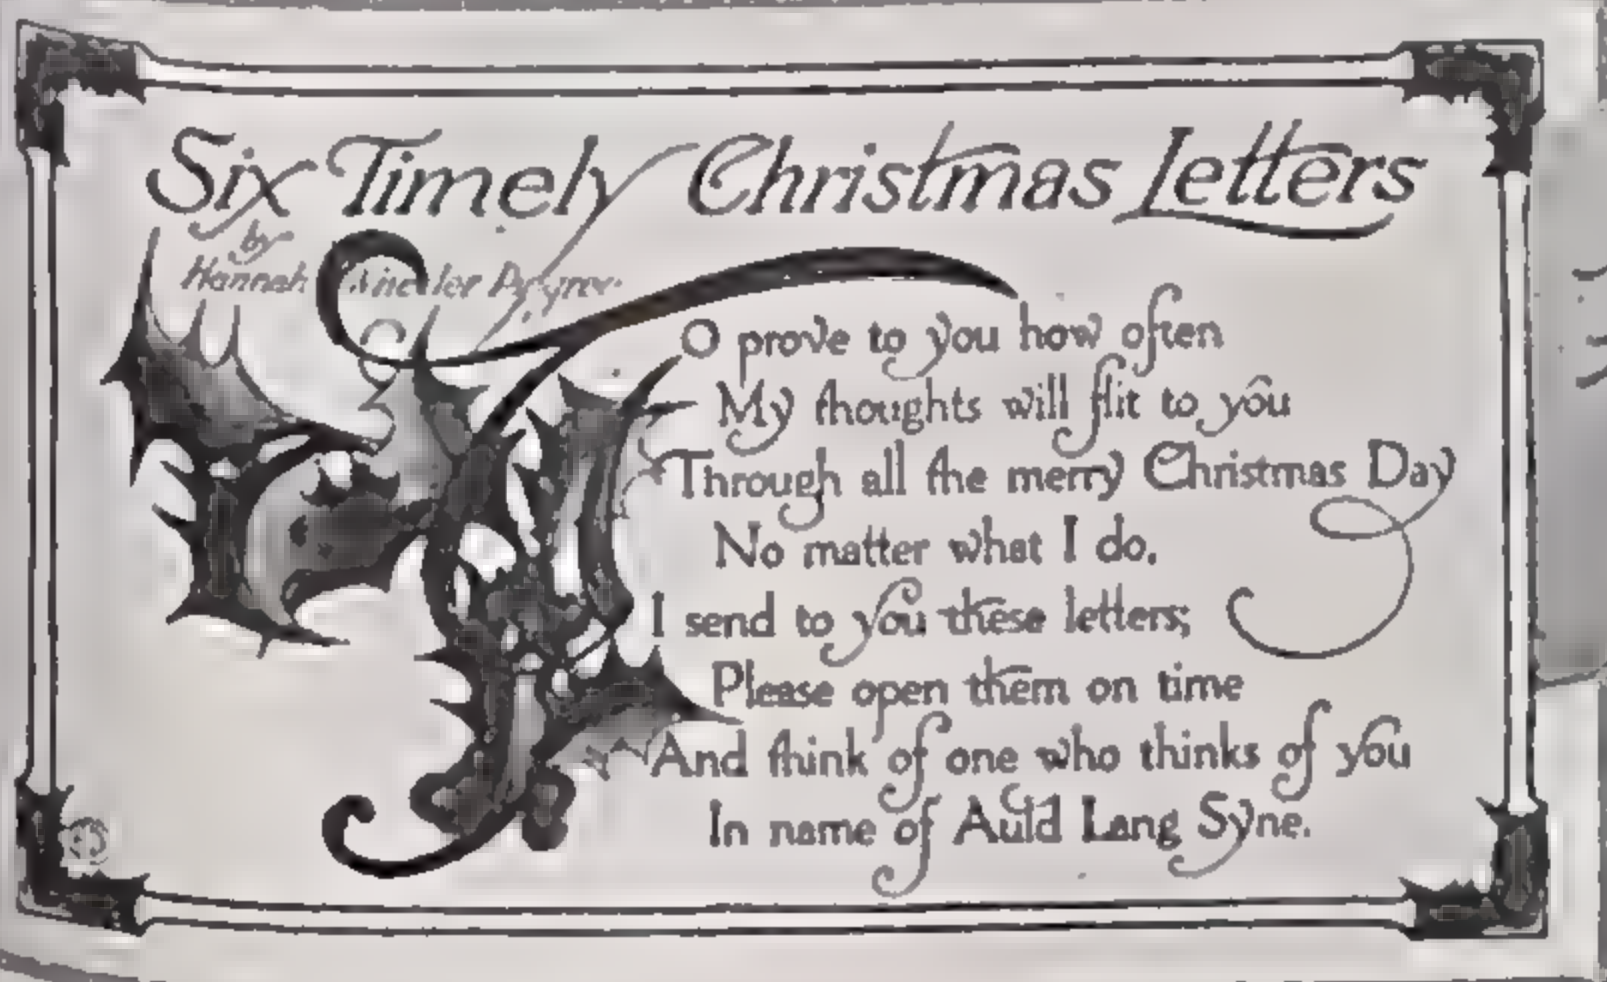 Six Timely Christmas Letters
by
Hannah
TO prove to you how often
My thoughts will flit to you
Through all the merry Christmas Day
No matter what I do.
I send to you these letters;
Please open them on time
And think of one who thinks of you
In name of Auld Lang Syne.